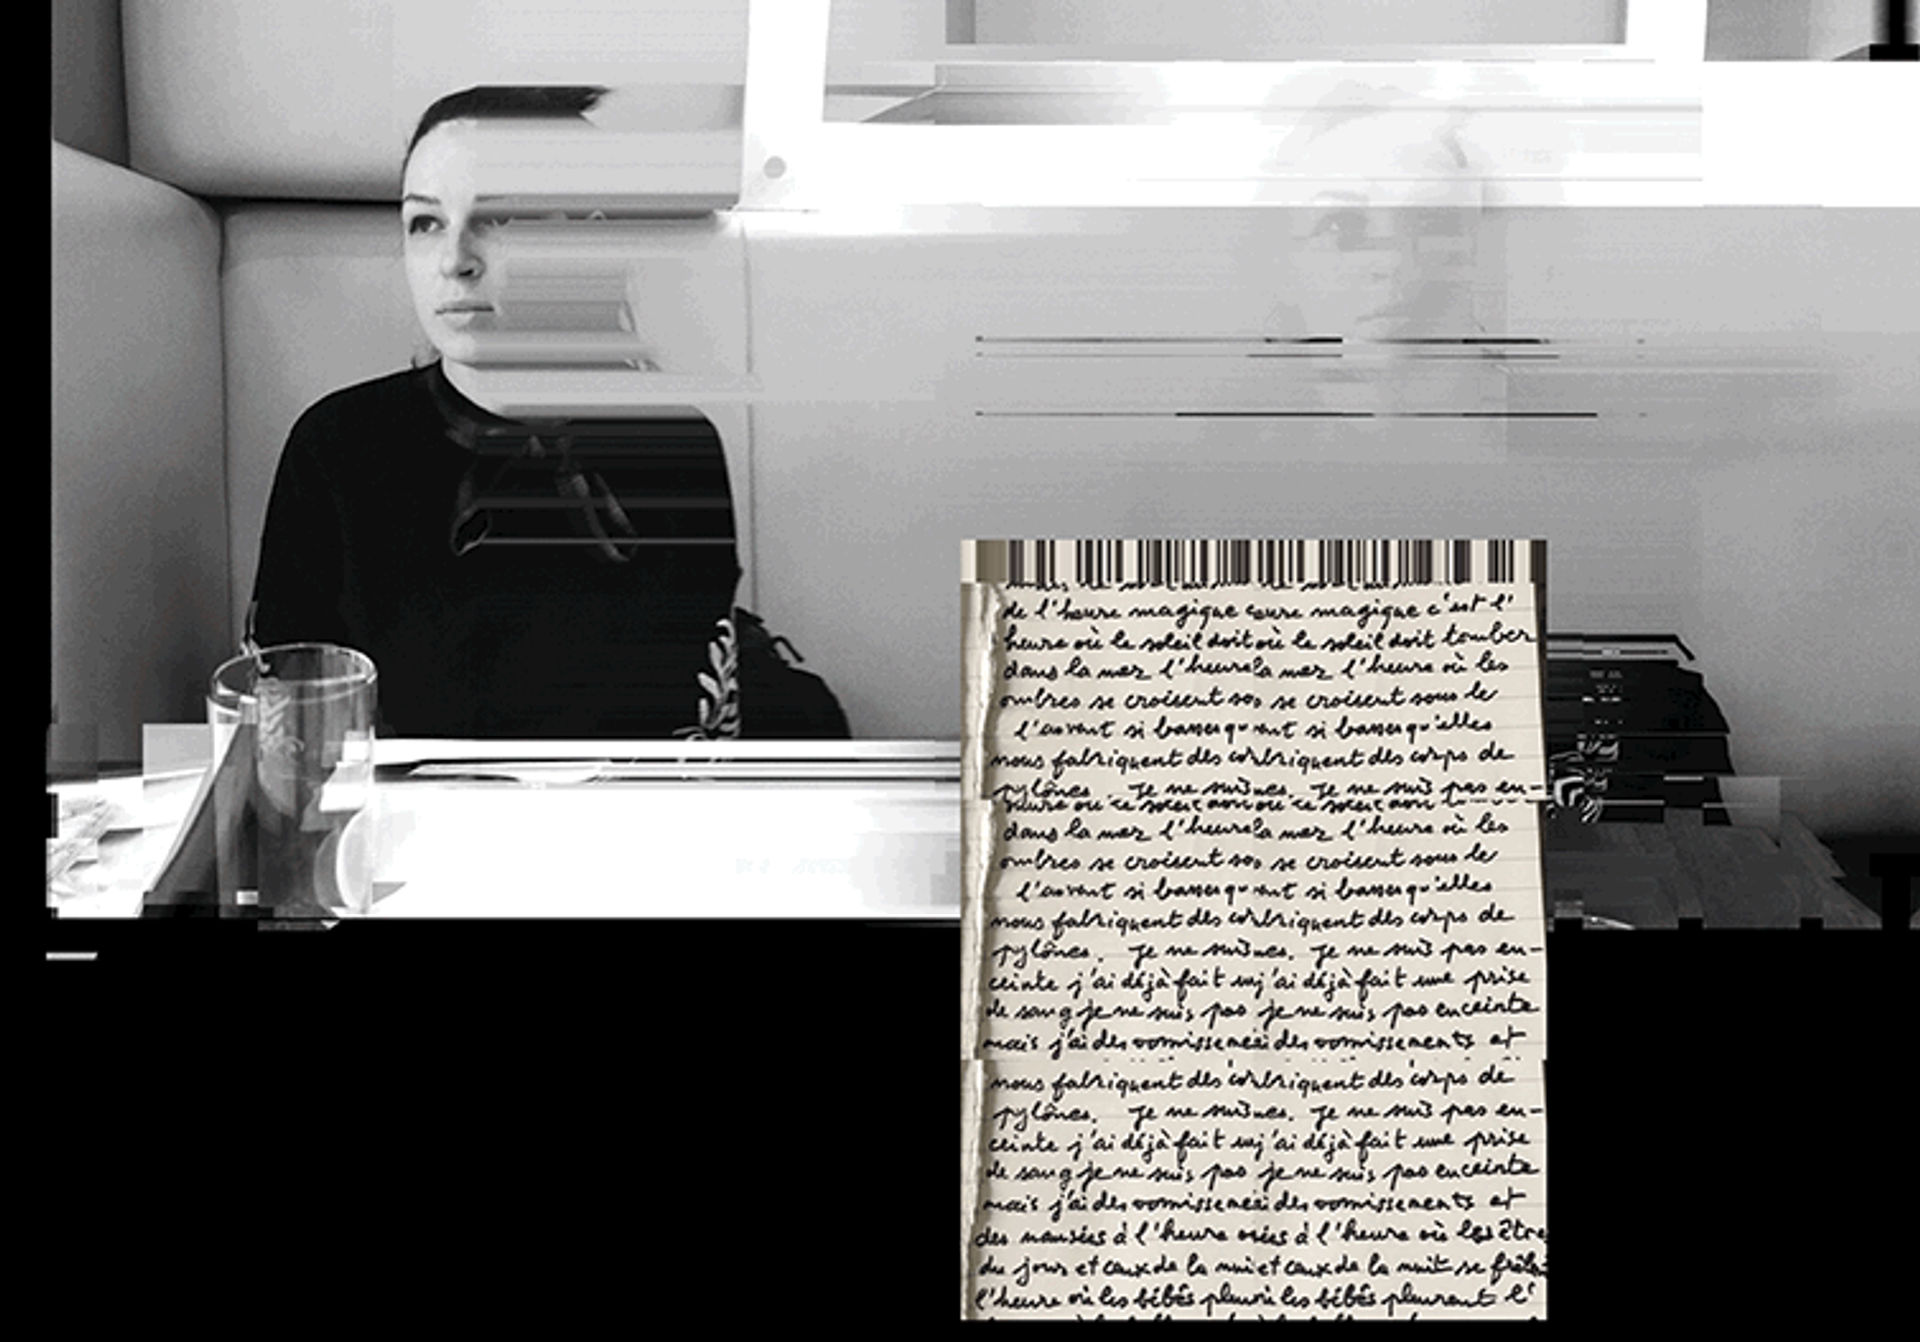 de l'heure magique eure magique c'est l'
heure où le soleil doit où le soleil doit tomber
dans la mer l'heure la mer l'heure où les
ombres se croisent so, se croisent sous le
si basses qu si basses qu'elles
nous fabriquent des cor briquent des corps de
pylônes. Je ne suis nes. Je ne suis pas en-
dans la mer l'heure la mer l'heure où les
ombres se croisent so, se croisent sous le
si basses qu si basses qu'elles
nous fabriquent des cor briquent des corps de
pylônes. Je ne suis nes. Je ne suis pas en-
ceinte j'ai déjà fait un j'ai déjà fait une prise
de sang je ne suis pas je ne suis pas enceinte
mais j'ai des vomissemen ai des vomissements et
nous fabriquent des cor briquent des corps de
pylônes. Je ne suis nes. Je ne suis pas en-
ceinte j'ai déjà fait un j'ai déjà fait une prise
de sang je ne suis pas je ne suis pas enceinte
mais j'ai des vomissemen ai des vomissements et
des nausées à l'heure sées à l'heure où les être
du jour et ceux de la nui et ceux de la nuit se frôlen
l'heure où les bébés pleu où les bébés pleurent l'